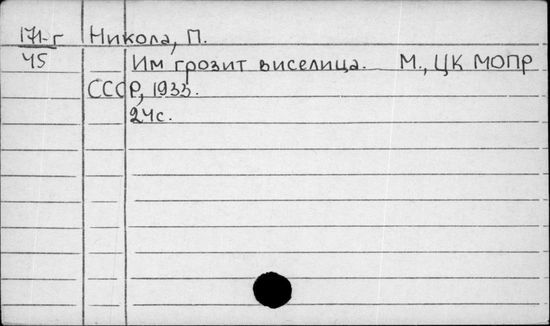 171-г Никола, П.
45 Им грозит виселица. М., ЦК МОПР
СССР, 1933.
24с.